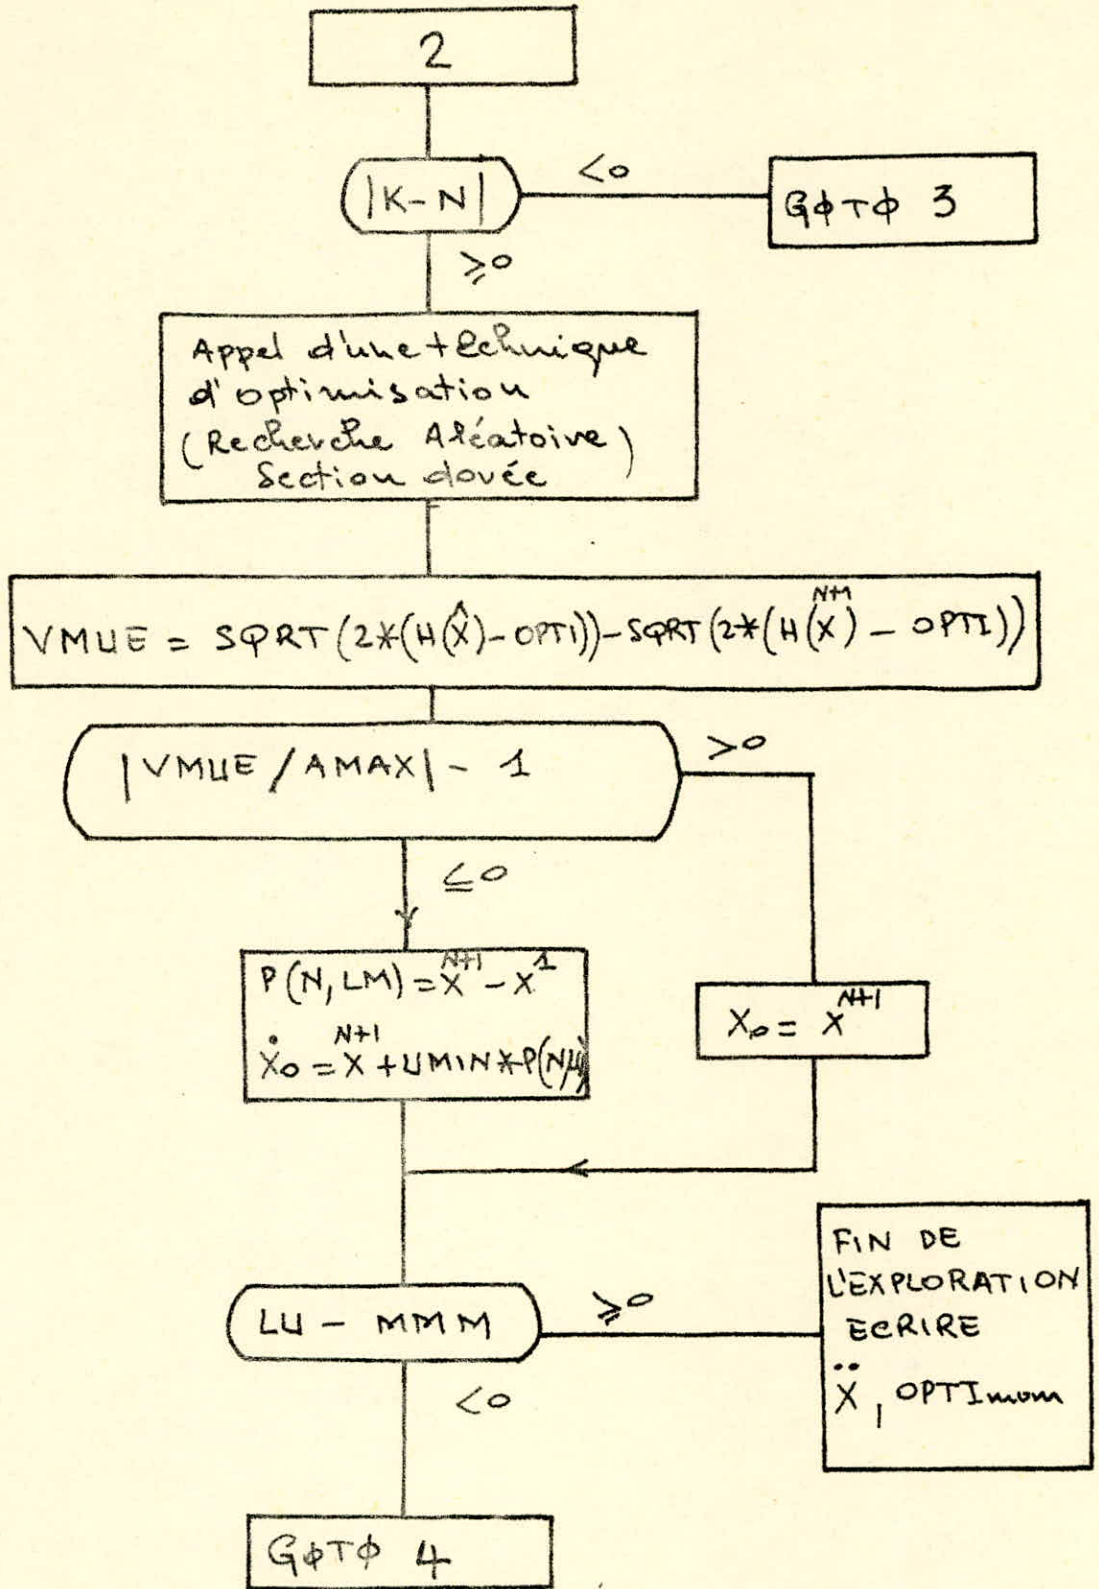 2
|K-N|
<0
GϕTϕ 3
⩾0
Appel d'une technique
d'optimisation
(Recherche Aléatoire)
Section dorée
VMUE = SQRT(2*(H(X̂)-OPTI))-SQRT(2*(H(X^{N+1})-OPTI))
|VMUE/AMAX| - 1
>0
≤0
P(N,LM) = X^{N+1} - X^1
Ẋ₀ = X^{N+1} + UMIN*P(N,
X₀ = X^{N+1}
LU - MMM
⩾0
FIN DE
L'EXPLORATION
ECRIRE
Ẍ, OPTImum
<0
GϕTϕ 4